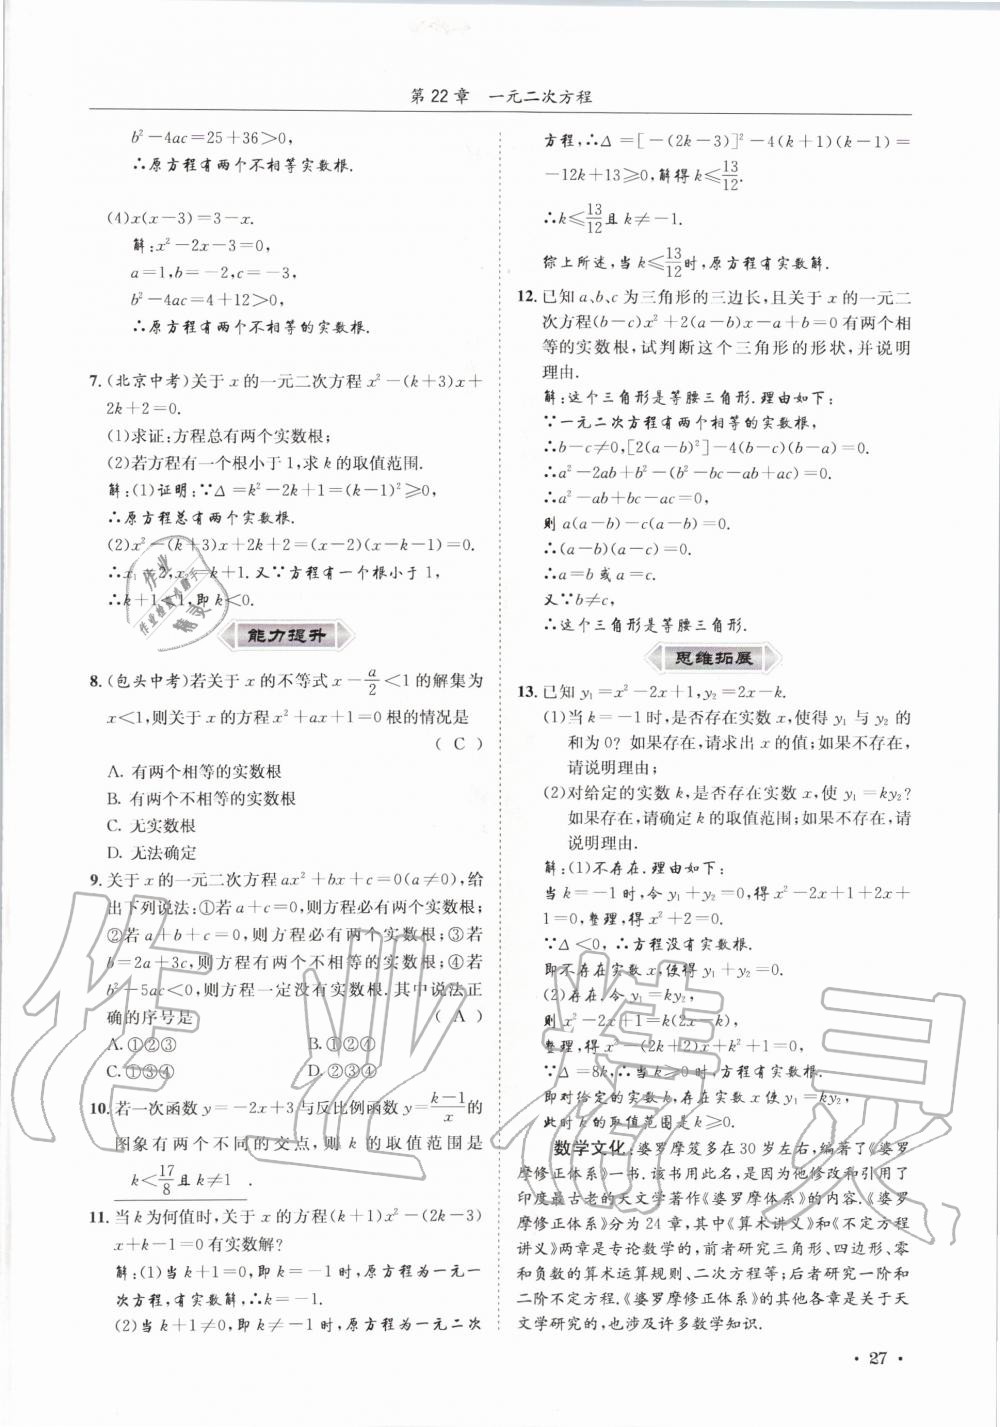 第22章 一元二次方程
b²-4ac=25+36>0,
∴原方程有两个不相等实数根.
(4)x(x-3)=3-x.
解:x²-2x-3=0,
a=1,b=-2,c=-3,
b²-4ac=4+12>0,
∴原方程有两个不相等的实数根.
7. (北京中考)关于x的一元二次方程x²-(k+3)x+
2k+2=0.
(1)求证:方程总有两个实数根;
(2)若方程有一个根小于1,求k的取值范围.
解:(1)证明:∵Δ=k²-2k+1=(k-1)²≥0,
∴原方程总有两个实数根.
(2)x²-(k+3)x+2k+2=(x-2)(x-k-1)=0.
∴x₁=2,x₂=k+1.又∵方程有一个根小于1,
∴k+1<1,即k<0.
能力提升
8. (包头中考)若关于x的不等式x-a/2<1的解集为
x<1,则关于x的方程x²+ax+1=0根的情况是
( C )
A. 有两个相等的实数根
B. 有两个不相等的实数根
C. 无实数根
D. 无法确定
9. 关于x的一元二次方程ax²+bx+c=0(a≠0),给
出下列说法:①若a+c=0,则方程必有两个实数根;
②若a+b+c=0,则方程必有两个实数根;③若
b=2a+3c,则方程有两个不相等的实数根;④若
b²-5ac<0,则方程一定没有实数根.其中说法正
确的序号是 ( A )
A.①②③ B.①②④
C.①③④ D.②③④
10. 若一次函数y=-2x+3与反比例函数y=(k-1)/x的
图象有两个不同的交点,则k的取值范围是
k<17/8且k≠1 .
11. 当k为何值时,关于x的方程(k+1)x²-(2k-3)
x+k-1=0有实数解?
解:(1)当k+1=0,即k=-1时,原方程为一元一
次方程,有实数解,∴k=-1.
(2)当k+1≠0,即k≠-1时,原方程为一元二次
方程,∴Δ=[-(2k-3)]²-4(k+1)(k-1)=
-12k+13≥0,解得k≤13/12.
∴k≤13/12且k≠-1.
综上所述,当k≤13/12时,原方程有实数解.
12. 已知a、b、c为三角形的三边长,且关于x的一元二
次方程(b-c)x²+2(a-b)x-a+b=0有两个相
等的实数根,试判断这个三角形的形状,并说明
理由.
解:这个三角形是等腰三角形.理由如下:
∵一元二次方程有两个相等的实数根,
∴b-c≠0,[2(a-b)²]-4(b-c)(b-a)=0.
∴a²-2ab+b²-(b²-bc-ab+ac)=0.
∴a²-ab+bc-ac=0,
则a(a-b)-c(a-b)=0.
∴(a-b)(a-c)=0.
∴a=b或a=c.
又∵b≠c,
∴这个三角形是等腰三角形.
思维拓展
13. 已知y₁=x²-2x+1,y₂=2x-k.
(1)当k=-1时,是否存在实数x,使得y₁与y₂的
和为0? 如果存在,请求出x的值;如果不存在,
请说明理由;
(2)对给定的实数k,是否存在实数x,使y₁=ky₂?
如果存在,请确定k的取值范围;如果不存在,请
说明理由.
解:(1)不存在.理由如下:
当k=-1时,令y₁+y₂=0,得x²-2x+1+2x+
1=0,整理,得x²+2=0.
∵Δ<0,∴方程没有实数根.
即不存在实数x,使得y₁+y₂=0.
(2)存在.令y₁=ky₂,
则x²-2x+1=k(2x-k),
整理,得x²-(2k+2)x+k²+1=0.
∵Δ=8k,∴当k≥0时,方程有实数根.
即对给定的实数k,存在实数x使y₁=ky₂,
此时k的取值范围是k≥0.
数学文化:婆罗摩笈多在30岁左右,编著了《婆罗
摩修正体系》一书.该书用此名,是因为他修改和引用了
印度最古老的天文学著作《婆罗摩体系》的内容.《婆罗
摩修正体系》分为24章,其中《算术讲义》和《不定方程
讲义》两章是专论数学的,前者研究三角形、四边形、零
和负数的算术运算规则、二次方程等;后者研究一阶和
二阶不定方程.《婆罗摩修正体系》的其他各章是关于天
文学研究的,也涉及许多数学知识.
·27·
作业精灵